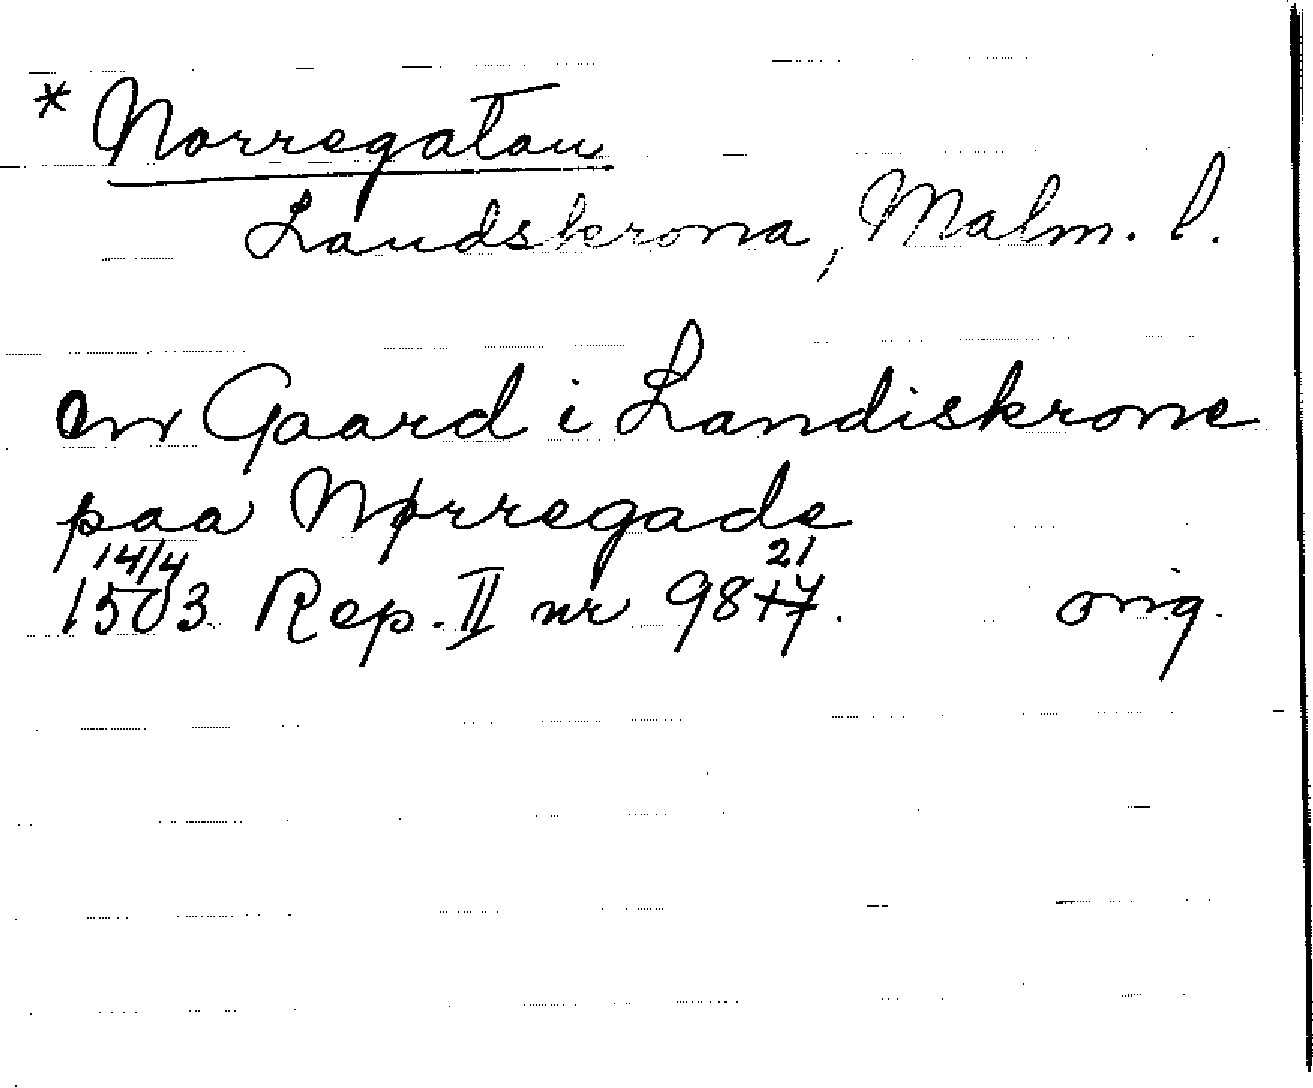 * Norregatan
Landskrona, Malm. l.
en Gaard i Landiskrone
paa Nørregade
14/4 21
1503 Rep. II nr 9817. orig.